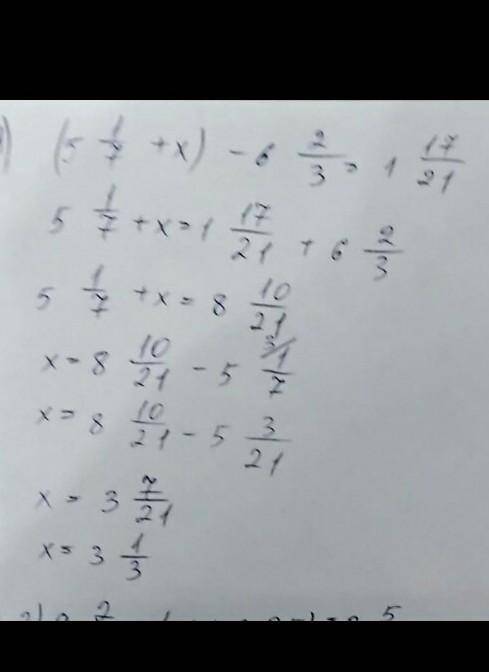 ) (5 1/7 + x) - 6 2/3 = 1 17/21
5 1/7 + x = 1 17/21 + 6 2/3
5 1/7 + x = 8 10/21
x = 8 10/21 - 5 3/ 1/7
x = 8 10/21 - 5 3/21
x = 3 7/21
x = 3 1/3